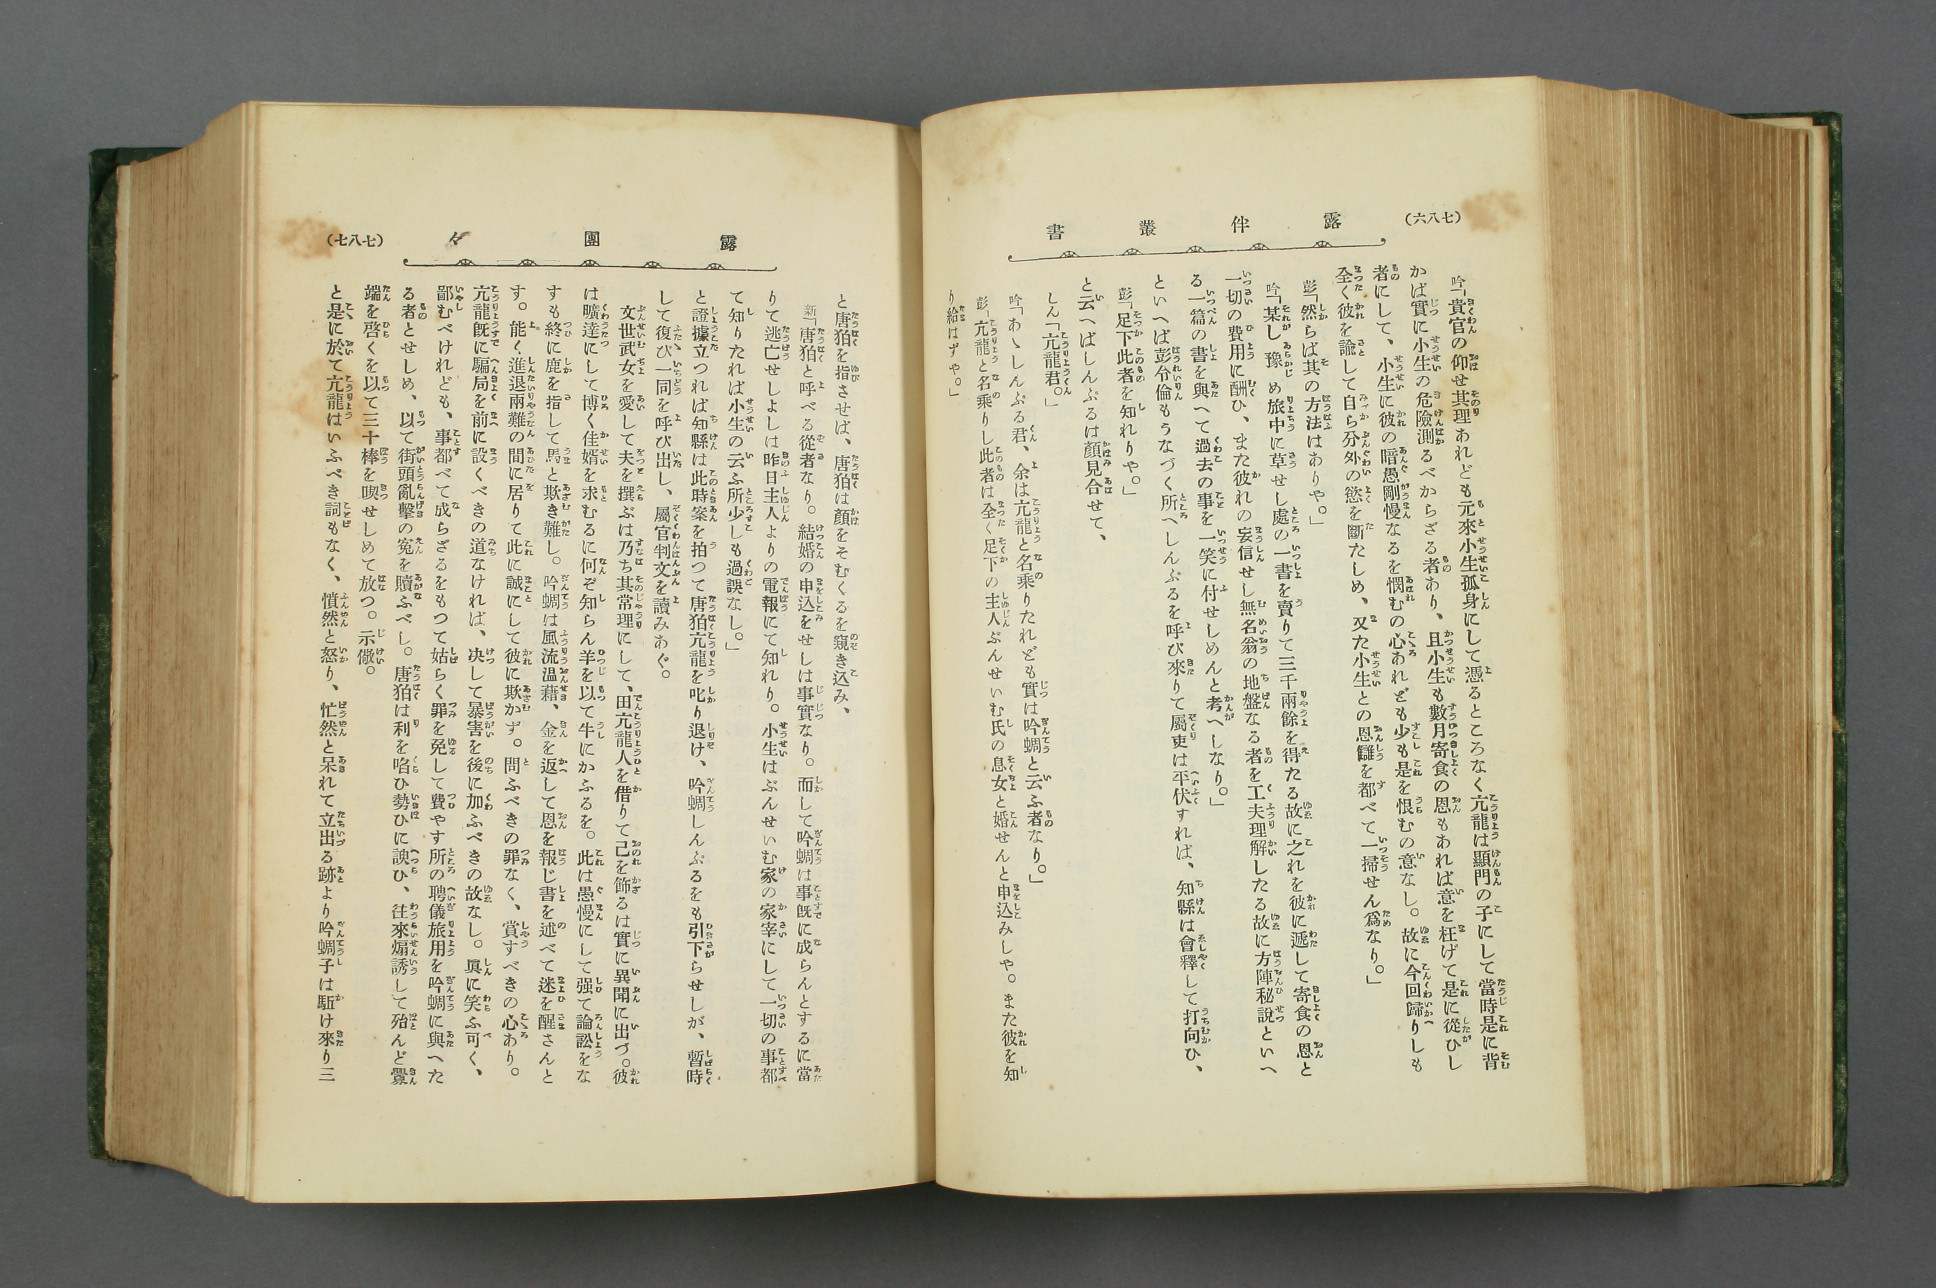 (七八六)
露伴叢書
吟「貴官の仰せ其理あれども元來小生孤身にして憑るところなく亢龍は顯門の子にして當時是に背
かば實に小生の危險測るべからざる者あり、且小生も數月寄食の恩もあれば意を枉げて是に從ひし
者にして、小生に彼の暗愚剛慢なるを憫むの心あれども少も是を恨むの意なし。故に今回歸りしも
全く彼を諭して自ら分外の慾を斷たしめ、又た小生との恩讎を都べて一掃せん爲なり。」
彭「然らば其の方法はありや。」
吟「某し豫め旅中に草せし處の一書を賣りて三千兩餘を得たる故に之れを彼に遞して寄食の恩と
一切の費用に酬ひ、また彼れの妄信せし無名翁の地盤なる者を工夫理解したる故に方陣秘說といへ
る一篇の書を與へて過去の事を一笑に付せしめんと考へしなり。」
といへば彭令倫もうなづく所へしんぷるを呼び來りて屬吏は平伏すれば、知縣は會釋して打向ひ、
彭「足下此者を知れりや。」
と云へばしんぷるは顏見合せて、
しん「亢龍君。」
吟「あゝしんぷる君、余は亢龍と名乘りたれども實は吟蜩と云ふ者なり。」
彭「亢龍と名乘りし此者は全く足下の主人ぶんせいむ氏の息女と婚せんと申込みしや。また彼を知
り給はずや。」
露團々
(七八七)
と唐狛を指させば、唐狛は顏をそむくるを窺き込み、
新「唐狛と呼べる從者なり。結婚の申込をせしは事實なり。而して吟蜩は事既に成らんとするに當
りて逃亡せしよしは昨日主人よりの電報にて知れり。小生はぶんせいむ家の家宰にして一切の事都
て知りたれば小生の云ふ所少しも過誤なし。」
と證據立つれば知縣は此時案を拍つて唐狛亢龍を叱り退け、吟蜩しんぷるをも引下らせしが、暫時
して復び一同を呼び出し、屬官判文を讀みあぐ。
文世武女を愛して夫を撰ぶは乃ち其常理にして、田亢龍人を借りて己を飾るは實に異聞に出づ。彼
は曠達にして博く佳婿を求むるに何ぞ知らん羊を以て牛にかふるを。此は愚慢にして强て論訟をな
すも終に鹿を指して馬と欺き難し。吟蜩は風流溫藉、金を返して恩を報じ書を述べて迷を醒さんと
す。能く進退兩難の間に居りて此に誠にして彼に欺かず。問ふべきの罪なく、賞すべきの心あり。
亢龍既に騙局を前に設くべきの道なければ、決して暴害を後に加ふべきの故なし。眞に笑ふ可く、
鄙むべけれども、事都べて成らざるをもつて姑らく罪を免して費やす所の聘儀旅用を吟蜩に與へた
る者とせしめ、以て街頭亂擊の寃を贖ふべし。唐狛は利を啗ひ勢ひに諛ひ、往來煽誘して殆んど釁
端を啓くを以て三十棒を喫せしめて放つ。示儆。
と是に於て亢龍はいふべき詞もなく、憤然と怒り、惘然と呆れて立出る跡より吟蜩子は駈け來り三